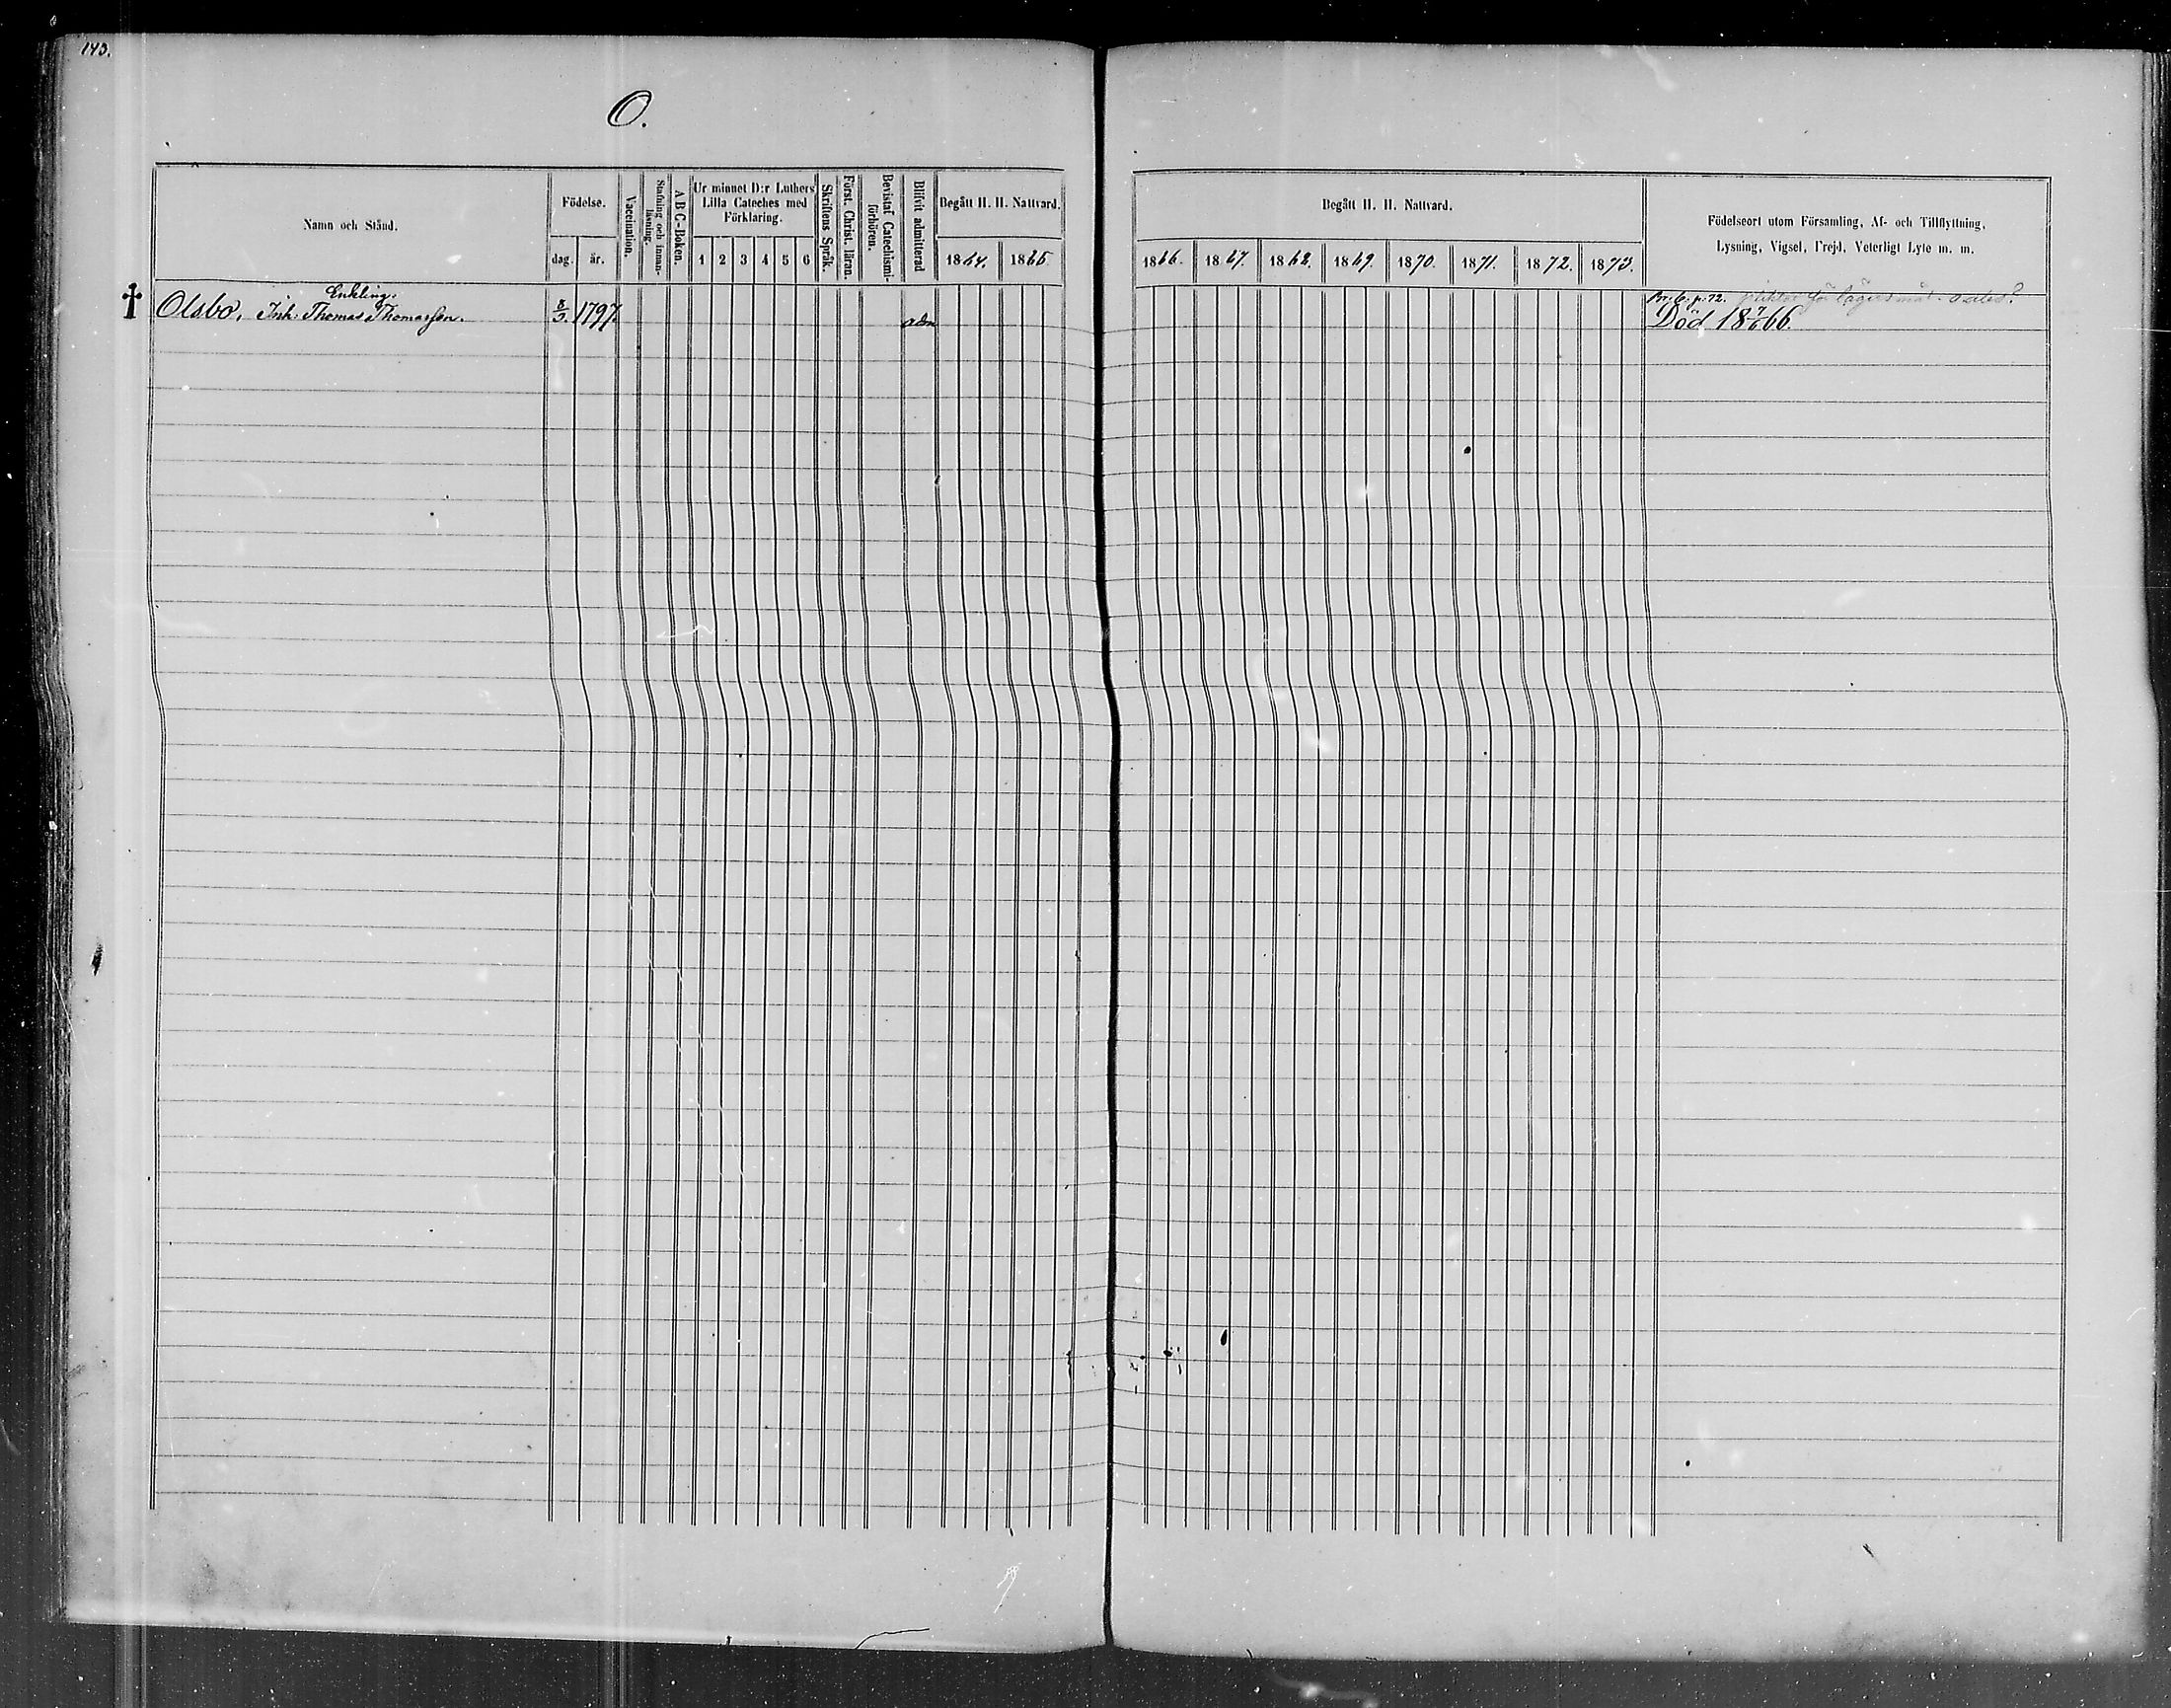 143.
O.
Namn och Stånd.
Födelse.
dag.
år.
Vaccination.
Stafning och innan-
läsning.
A B C-Boken.
Ur minnet D:r Luthers
Lilla Cateches med
Förklaring.
1 2 3 4 5 6
Skriftens Språk.
Först. Christ. läran.
Bevistat Catechismi-
förhören.
Blifvit admitterad
Begått H. H. Nattvard.
1864. 1865
Begått H. H. Nattvard.
1866. 1867. 1868. 1869. 1870. 1871. 1872. 1873.
Födelseort utom Församling, Af- och Tillflyttning,
Lysning, Vigsel, Frejd, Veterligt Lyte m. m.
Enkling.
Olsbo, Inh. Thomas Thomasson. 8/3 1797 adm
Br. 6. p. 72.
Död 18 7/6 66.